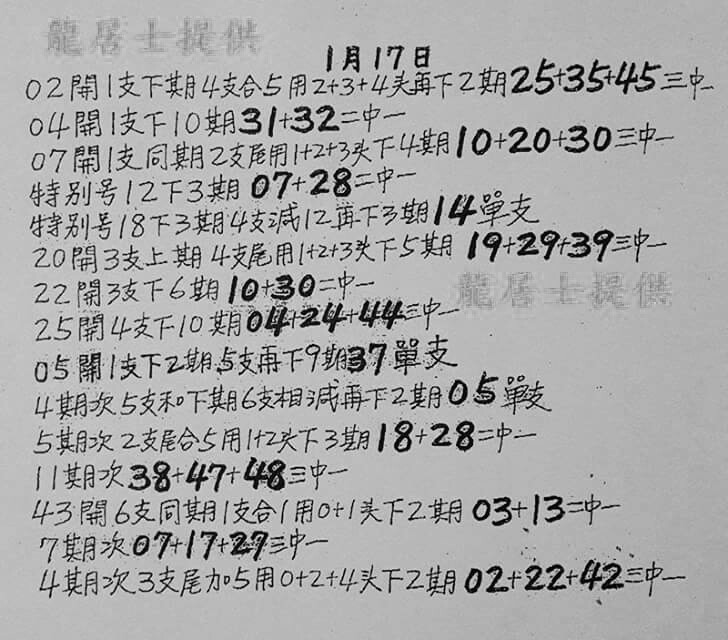 龍居士提供
1月17日
02開1支下期4支合5用2+3+4头再下2期25+35+45三中一
04開1支下10期31+32二中一
07開1支同期2支尾用1+2+3头下4期10+20+30三中一
特別号12下3期 07+28二中一
特別号18下3期4支減12再下3期14單支
20開3支上期4支尾用1+2+3头下5期 19+29+39三中一
22開3支下6期10+30二中一
龍居士提供
25開4支下10期04+24+44三中一
05開1支下2期5支再下9期37單支
4期次5支和下期6支相減再下2期05單支
5期次2支尾合5用1+2头下3期18+28二中一
11期次38+47+48三中一
43開6支同期1支合1用0+1头下2期 03+13二中一
7期次07+17+27三中一
4期次3支尾加5用0+2+4头下2期02+22+42三中一